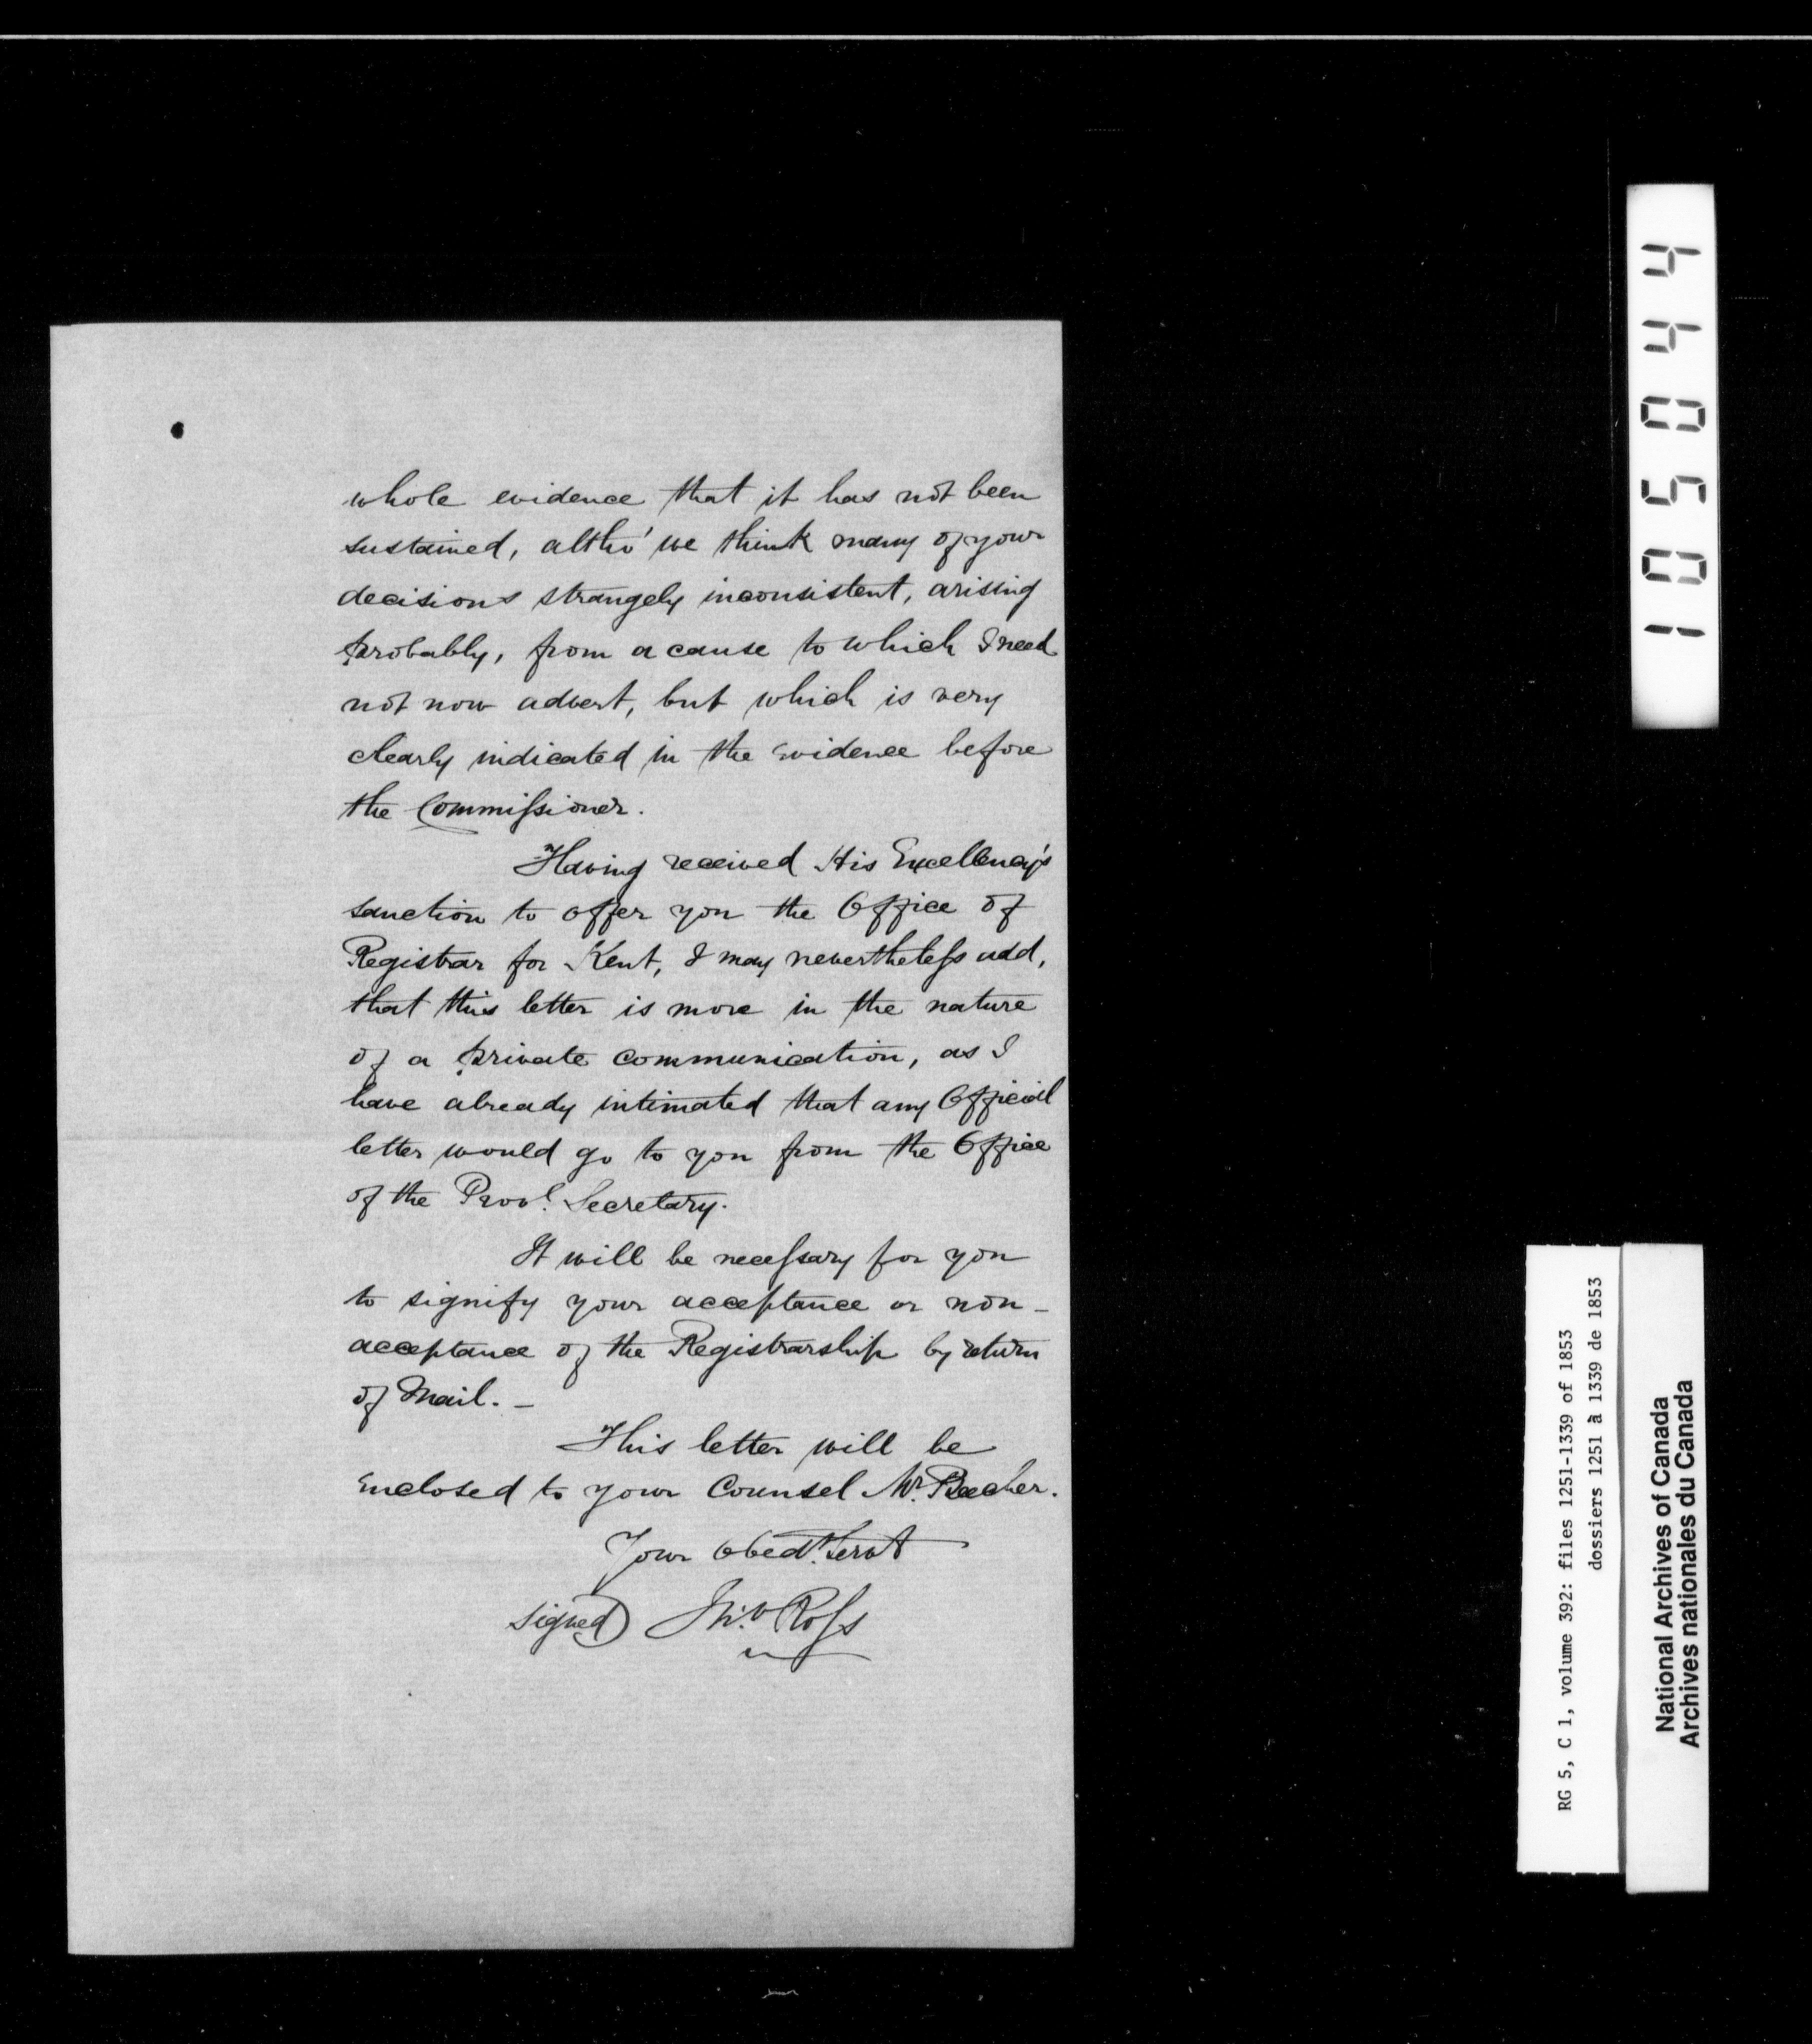 whole evidence that it has not been
sustained, altho' we think many of your
decisions strangely inconsistent, arising
probably, from a cause to which I need
not now advert, but which is very
clearly indicated in the evidence before
the Commissioner.
Having received His Excellency's
sanction to offer you the Office of
Registrar for Kent, I may nevertheless add,
that this letter is more in the nature
of a private communication, as I
have already intimated that any Official
letter would go to you from the Office
of the Provl. Secretary.
It will be necessary for you
to signify your acceptance or non-
acceptance of the Registrarship by return
of Mail. -
This letter will be
enclosed to your Counsel Mr. Becher.
Your obedt. Servt
signed) Jno. Ross
105044
RG 5, C 1, volume 392: files 1251-1339 of 1853
dossiers 1251 à 1339 de 1853
National Archives of Canada
Archives nationales du Canada